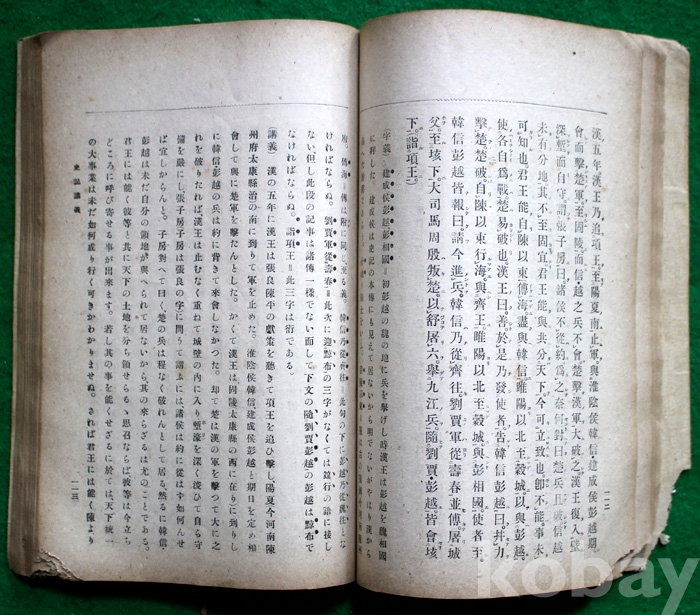 漢五年漢王乃追項王至陽夏南止軍與淮陰侯韓信建成侯彭越期
會而擊楚軍至固陵而信越之兵不會楚擊漢軍大破之漢王復入壁
深塹而自守謂張子房曰諸侯不從約爲之奈何對曰楚兵且破信越
未有分地其不至固宜君王能與共分天下今可立致也卽不能事未
可知也君王能自陳以東傅海盡與韓信睢陽以北至穀城以與彭越
使各自爲戰楚易破也漢王曰善於是乃發使者告韓信彭越曰幷力
擊楚楚破自陳以東行海與齊王睢陽以北至穀城與彭相國使者至
韓信彭越皆報曰請今進兵韓信乃從齊往劉賈軍從壽春並傅屠城
父至垓下大司馬周殷叛楚以舒屠六擧九江兵隨劉賈彭越皆會垓
下詣項王
(字義)建成侯彭越彭相國=初彭越の魏の地に兵を擧げし時漢王は彭越を魏相國
に拜した建成侯は史記の本傳にも見えて居ないから明でないがやはり漢から
なければならぬ。劉賈軍從壽春=此次に迎黥布の三字がなくては竝行の語に接し
ない但し此段の記事は諸傳一樣でない而して下文の隨劉賈彭越の彭越は黥布で
なければならぬ。詣項王=此三字は衍である)
(講義)漢の五年に漢王は張良陳平の獻策を聽きて項王を追ひ擊し陽夏今河南陳
州府太康縣治の南に到りて軍を止めた。淮陰侯韓信建成侯彭越と期日を定め相
會して與に楚軍を擊たんとした。かくて漢王は固陵太康縣の西に在りに到りし
に韓信彭越の兵は約に背きて來會しなかつた。却て楚は漢の軍を擊つて大に之
れを破りたれば、漢王は止むなく重ねて城壁の內に入り塹濠を深く浚ひて自ら守
備を嚴にし張子房子房は張良の字に問うて諸には諸侯は約に從はず如何んせ
ば宜しからんと。子房對へて曰く楚の兵は程なく破れんとして居る、然るに韓信
彭越は未だ自分の領地が與へられて居ないから、其の來らざるは尤のことである。
君王には能く彼等と共に天下の土地を分ち領せらるゝ思召ならば彼等は今立ち
どころに呼び寄せる事が出來ます。若し其の事を能くせざるに於ては、天下統一
の大事業は未だ如何成り行く可きかわかりませぬ。されば君王には能く陳より
史記講義
一一三
一一二
kobay